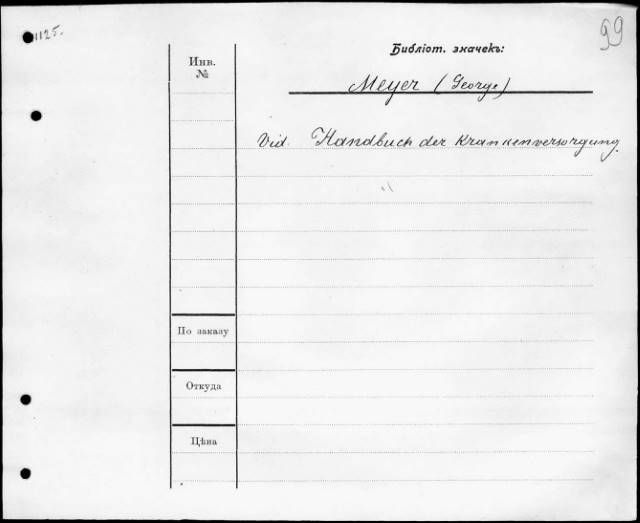 1125.
99
Библіот. значекъ:
Инв.
№
Meyer (George)
Vid. Handbuch der Krankenversorgung.
По заказу
Откуда
Цѣна